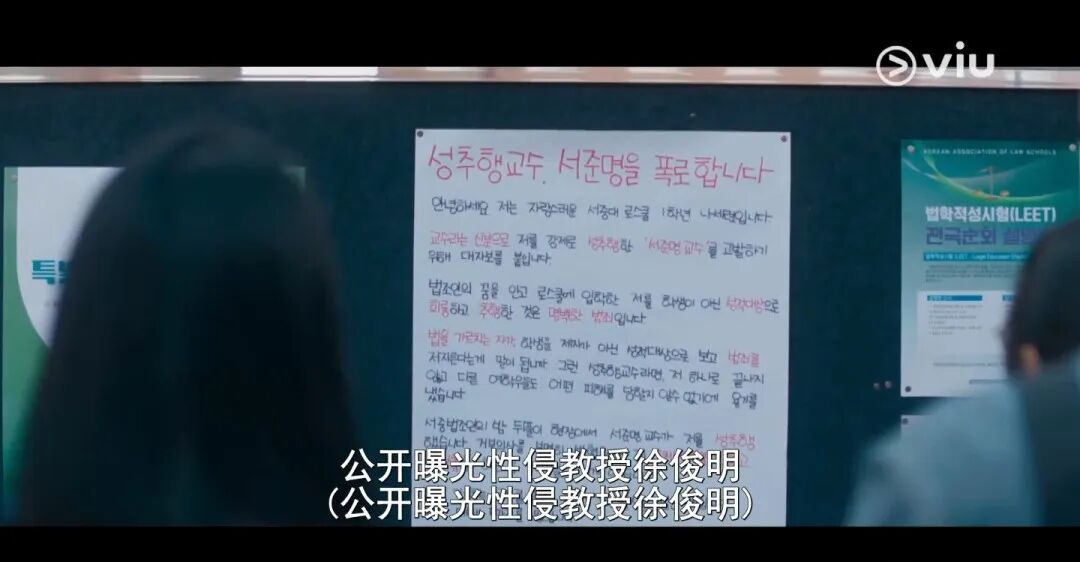 viu
성추행교수, 서준명을 폭로합니다
안녕하세요 저는 자랑스러운 서중대 로스쿨 1학년 나세련입니다
교수라는 신분으로 저를 강제로 성추행한 '서준명 교수'를 고발하기
위해 대자보를 붙입니다.
법조인의 꿈을 안고 로스쿨에 입학한 저를 학생이 아닌 성적대상으로
희롱하고 추행한 것은 명백한 범죄입니다
법을 가르치는 자가, 학생을 제자가 아닌 성적대상으로 보고 범죄를
저지른다는게 말이 됩니까 그런 성추행교수라면, 저 하나로 끝나지
않고 다른 여학우들도 어떤 피해를 당할지 알수 없기에 용기를
냈습니다
서중법조인의 밤 뒤풀이 현장에서 서준명 교수가 저를 성추행
했습니다. 거부의사를
KOREAN ASSOCIATION OF LAW SCHOOLS
법학적성시험(LEET)
전국순회 설명
公开曝光性侵教授徐俊明
(公开曝光性侵教授徐俊明)